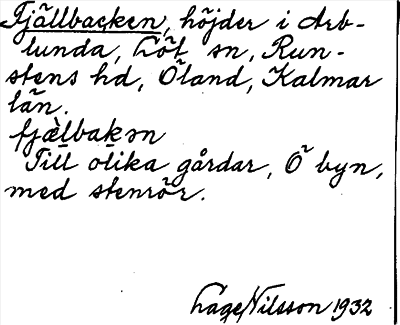 Fjällbacken, höjder i Arb-
lunda, Löt sn, Run-
stens hd, Öland, Kalmar
län.
fjælbakən
Till olika gårdar, Ö byn,
med stenrör.
Lage Nilsson 1932